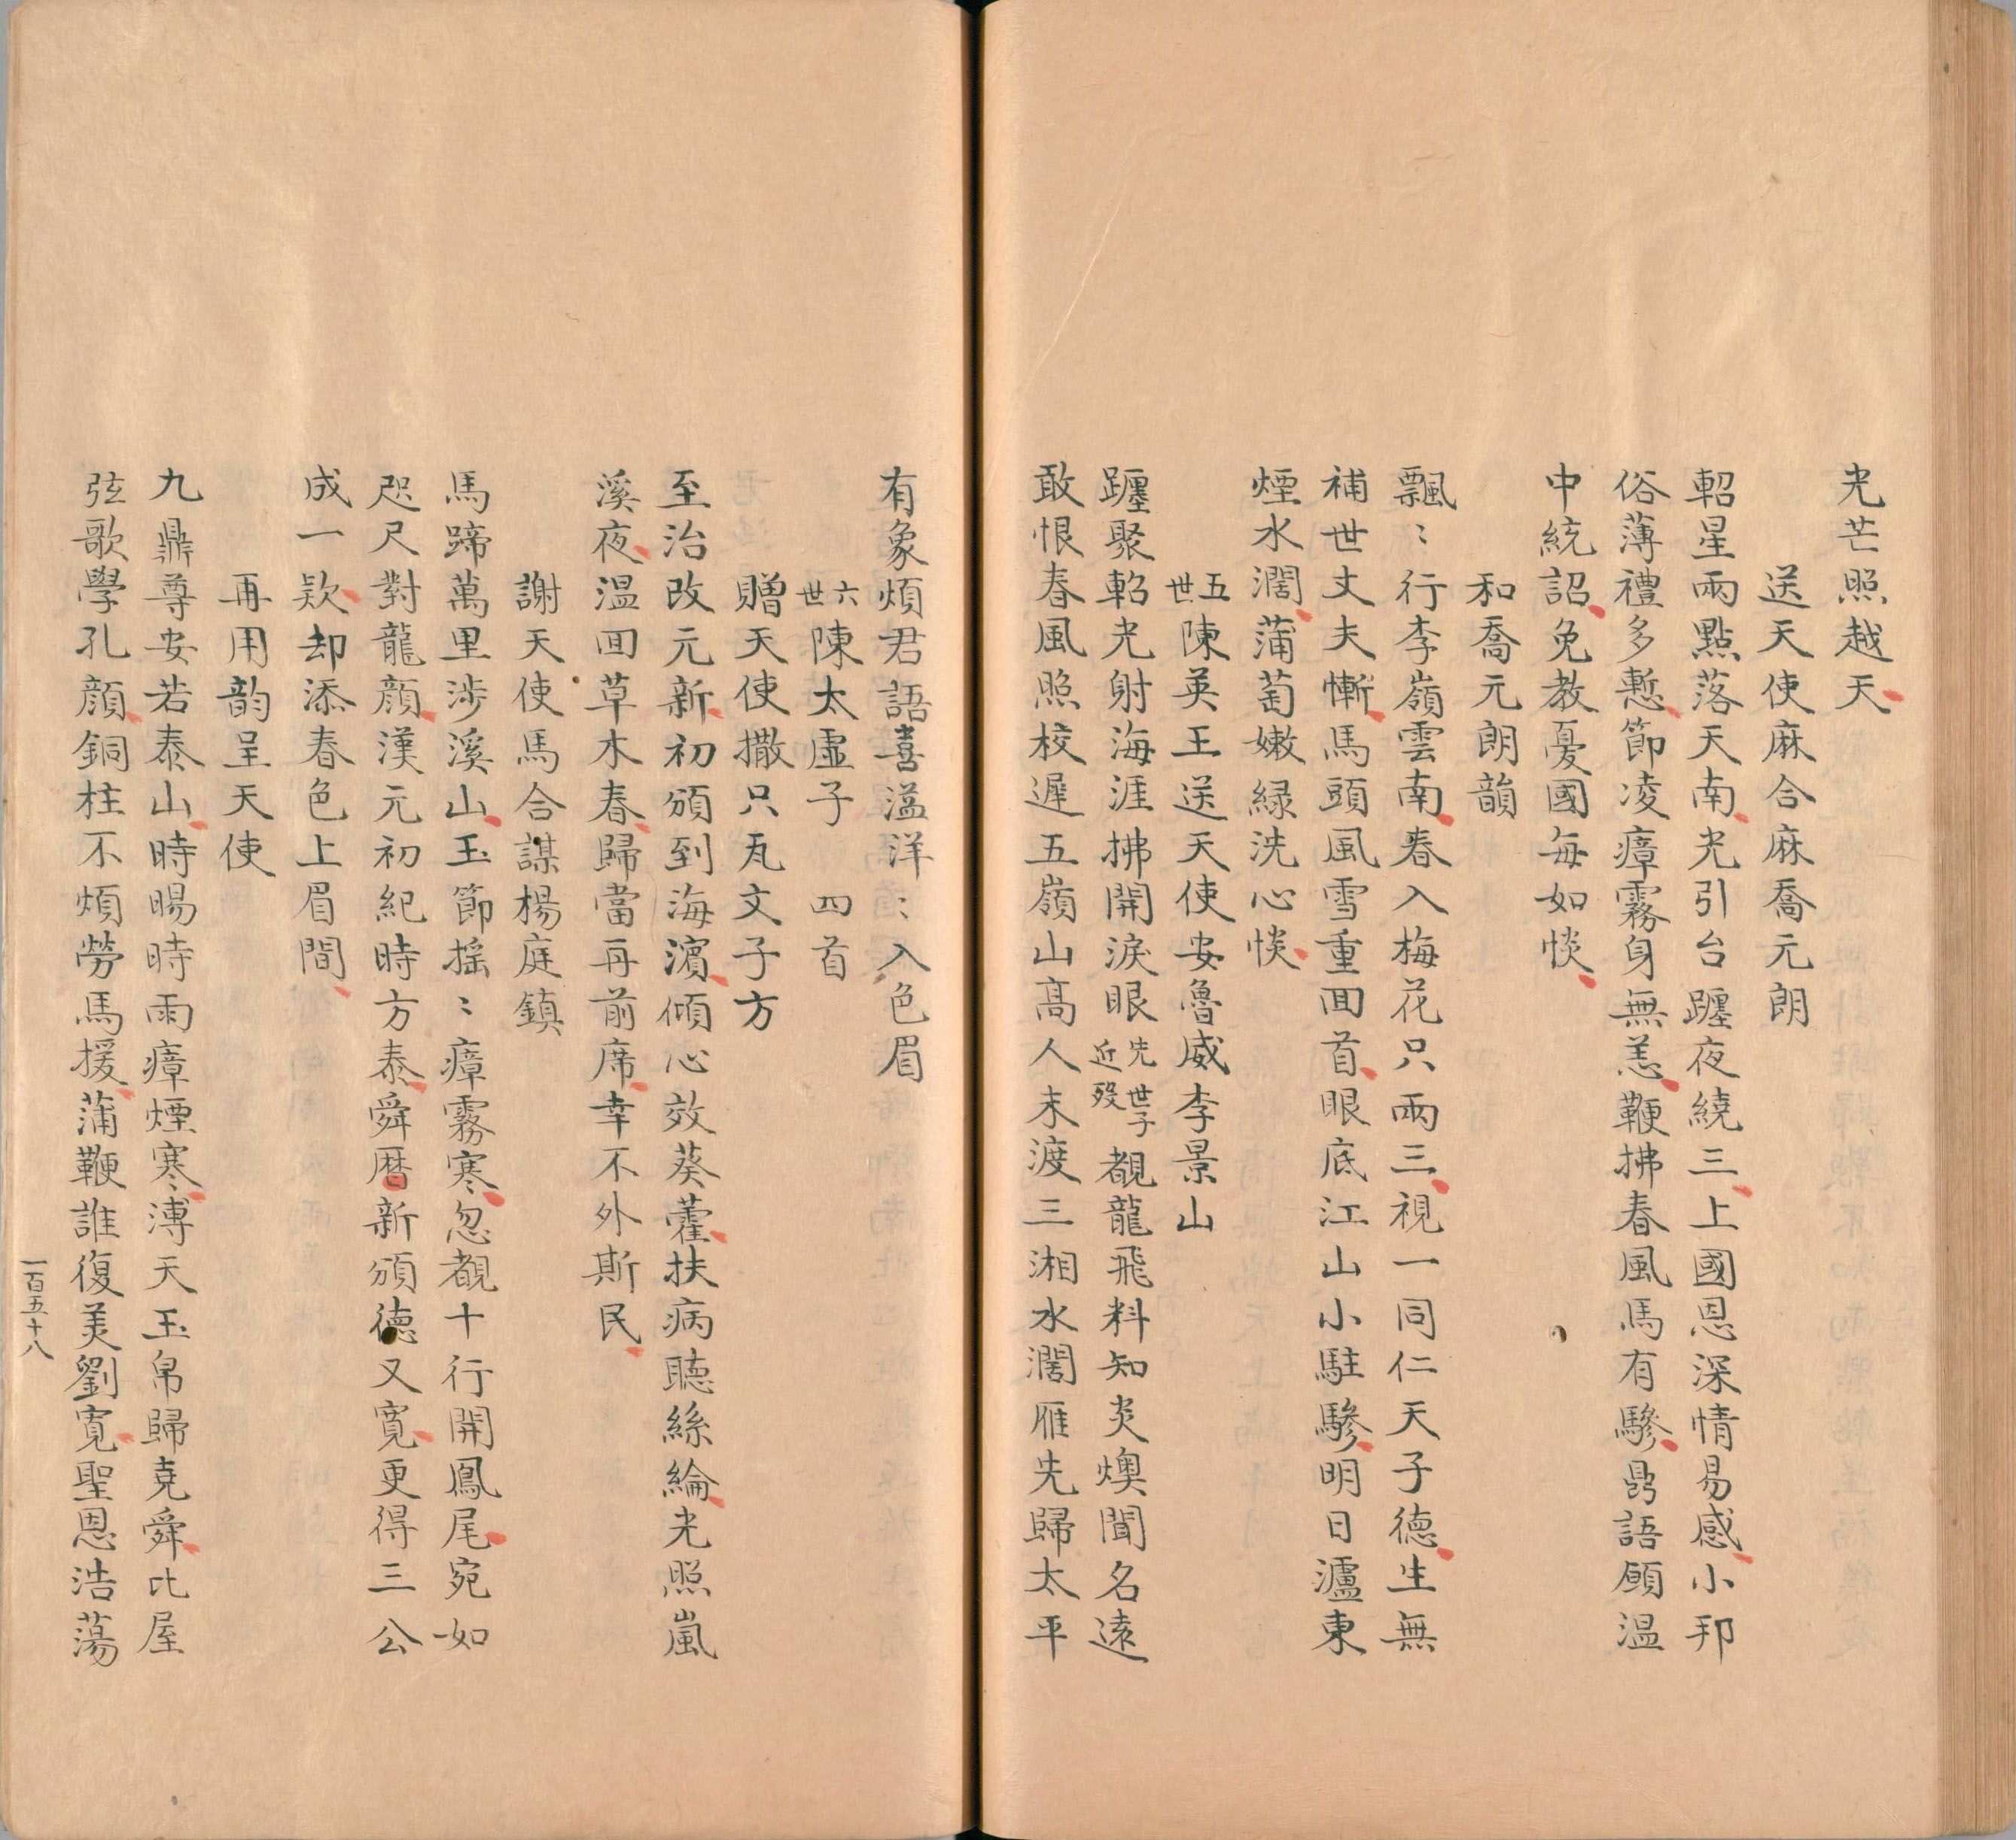 光芒照越天
送天使麻合麻喬元朗
軺星兩點落天南光引台躔夜繞三上國恩深情易感小邦
俗薄禮多慙節凌瘴霧身無恙鞭拂春風馬有驂鼎語願溫
中統詔免教憂國每如惔
和喬元朗韻
飄〻行李嶺雲南春入梅花只兩三視一同仁天子德生無
補世丈夫慚馬頭風雪重囬首眼底江山小駐驂明日瀘東
煙水濶蒲萄嫩綠洗心惔
五世陳英王送天使安魯威李景山
躔聚軺光射海涯拂開淚眼先世子近歿覩龍飛料知炎燠聞名遠
敢恨春風照校遲五嶺山高人未渡三湘水濶雁先歸太平
有象煩君語喜溢洋〻入色眉
六世陳太虛子　四首
贈天使撒只瓦文子方
至治改元新初頒到海濵傾心效葵藿扶病聽絲綸光照嵐
溪夜温囬草木春歸當再前席幸不外斯民
謝天使馬合謀楊庭鎮
馬蹄萬里涉溪山玉節摇〻瘴霧寒忽覩十行開鳳尾宛如
咫尺對龍顔漢元初紀時方泰舜曆新頒德又寬更得三公
成一欵却添春色上眉間
再用韵呈天使
九鼎尊安若泰山時暘時雨瘴煙寒溥天玉帛歸堯舜比屋
弦歌學孔顔銅柱不煩勞馬援蒲鞭誰復羙劉寬聖恩浩蕩
一百五十八